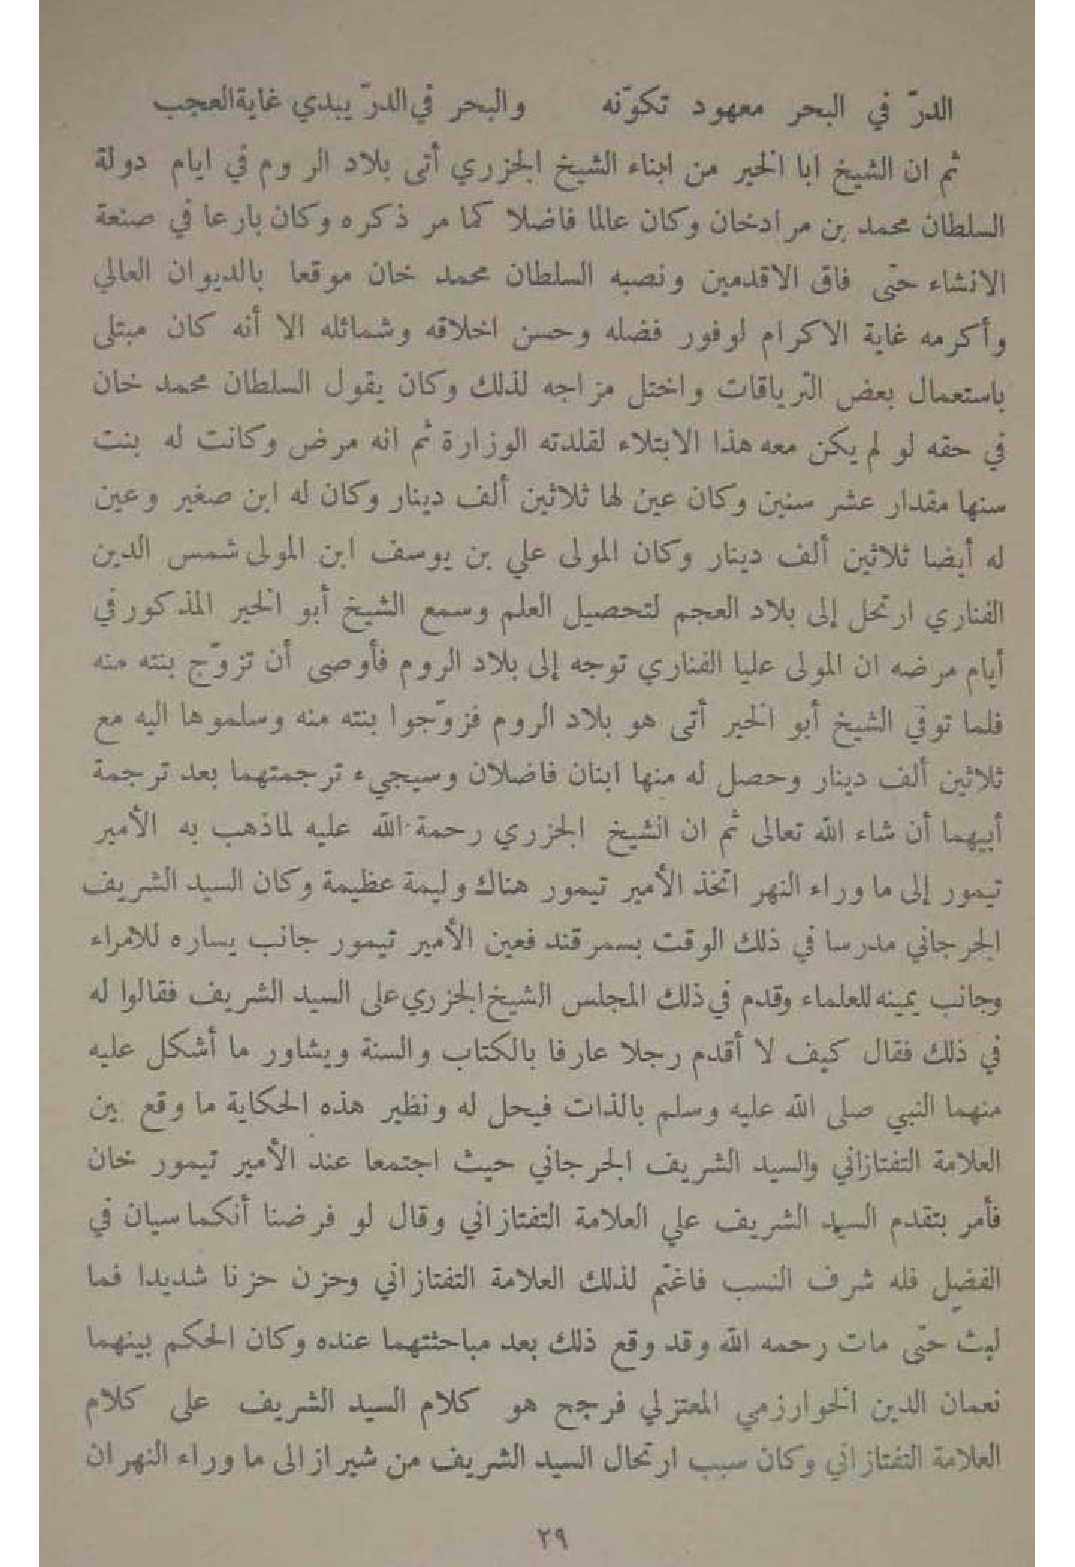 الدرّ في البحر معهود تكوّنه والبحر في الدرّ يبدي غاية العجب
ثم ان الشيخ ابا الخير من ابناء الشيخ الجزري أتى بلاد الروم في ايام دولة
السلطان محمد بن مرادخان وكان عالما فاضلا كما مر ذكره وكان بارعا في صنعة
الانشاء حتّى فاق الاقدمين ونصبه السلطان محمد خان موقعا بالديوان العالي
وأكرمه غاية الاكرام لوفور فضله وحسن اخلاقه وشمائله الا أنه كان مبتلى
باستعمال بعض التّرياقات واختل مزاجه لذلك وكان يقول السلطان محمد خان
في حقه لو لم يكن معه هذا الابتلاء لقلدته الوزارة ثم انه مرض وكانت له بنت
سنها مقدار عشر سنين وكان عين لها ثلاثين ألف دينار وكان له ابن صغير وعين
له أيضا ثلاثين ألف دينار وكان المولى علي بن يوسف ابن المولى شمس الدين
الفناري ارتحل إلى بلاد العجم لتحصيل العلم وسمع الشيخ أبو الخير المذكور في
أيام مرضه ان المولى عليا الفناري توجه إلى بلاد الروم فأوصى أن تزوّج بنته منه
فلما توفي الشيخ أبو الخير أتى هو بلاد الروم فزوّجوا بنته منه وسلموها اليه مع
ثلاثين ألف دينار وحصل له منها ابنان فاضلان وسيجيء ترجمتهما بعد ترجمة
أبيهما أن شاء الله تعالى ثم ان الشيخ الجزري رحمة الله عليه لماذهب به الأمير
تيمور إلى ما وراء النهر اتخذ الأمير تيمور هناك وليمة عظيمة وكان السيد الشريف
الجرجاني مدرسا في ذلك الوقت بسمرقند فعين الأمير تيمور جانب يساره للامراء
وجانب يمينه للعلماء وقدم في ذلك المجلس الشيخ الجزري على السيد الشريف فقالوا له
في ذلك فقال كيف لا أقدم رجلا عارفا بالكتاب والسنة ويشاور ما أشكل عليه
منهما النبي صلى الله عليه وسلم بالذات فيحل له ونظير هذه الحكاية ما وقع بين
العلامة التفتازاني والسيد الشريف الجرجاني حيث اجتمعا عند الأمير تيمور خان
فأمر بتقدم السيد الشريف علي العلامة التفتازاني وقال لو فرضنا أنكما سيان في
الفضيل فله شرف النسب فاغتم لذلك العلامة التفتازاني وحزن حزنا شديدا فما
لبث حتّى مات رحمه الله وقد وقع ذلك بعد مباحثتهما عنده وكان الحكم بينهما
نعمان الدين الخوارزمي المعتزلي فرجح هو كلام السيد الشريف على كلام
العلامة التفتازاني وكان سبب ارتحال السيد الشريف من شيراز الى ما وراء النهر ان
٢٩